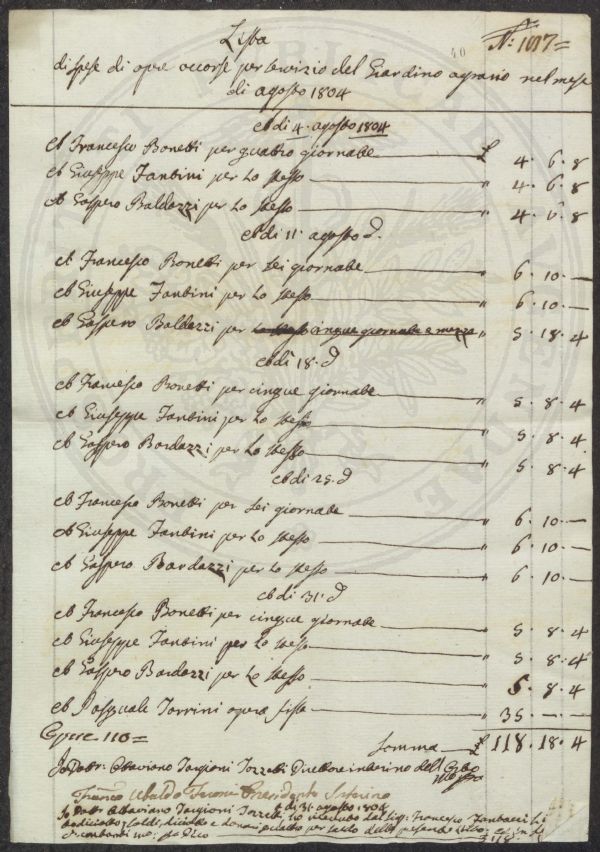 Lista
N:° 1017=
40
di spese di opre occorse per servizio del Giardino agrario nel mese
di agosto 1804
A di 4. agosto 1804
A Francesco Bonetti per quattro giornate £ 4. 6. 8
A Giuseppe Fantini per Lo stesso " 4. 6. 8
A Gaspero Baldazzi per Lo stesso " 4. 6. 8
A di 11. agosto d.
A Francesco Bonetti per sei giornate " 6. 10. —
A Giuseppe Fantini per Lo stesso " 6. 10. —
A Gaspero Baldazzi per Lo stesso cinque giornate e mezza " 5. 18. 4
A di 18. d
A Francesco Bonetti per cinque giornate " 5. 8. 4
A Giuseppe Fantini per Lo stesso " 5. 8. 4
A Gaspero Bardazzi per Lo stesso " 5. 8. 4
A di 25. d
A Francesco Bonetti per sei giornate " 6. 10. —
A Giuseppe Fantini per Lo stesso " 6. 10. —
A Gaspero Bardazzi per Lo stesso " 6. 10. —
A di 31. d
A Francesco Bonetti per cinque giornate " 5. 8. 4
A Giuseppe Fantini per Lo stesso " 5. 8. 4
A Gaspero Bardazzi per Lo stesso " 5. 8. 4
A Pasquale Torrini opera fissa " 35. — —
Opere 110=
Somma £ 118. 18. 4
Io Dottr. Ottaviano Targioni Tozzetti Direttore interino dell'Orto
Ubaldo Presidente Interino
A di 31 agosto 1804
Io Dottr Ottaviano Targioni Tozzetti ho ricevuto dal Sig: Francesco
soldi diciotto e denari quattro per saldo della presente
contanti